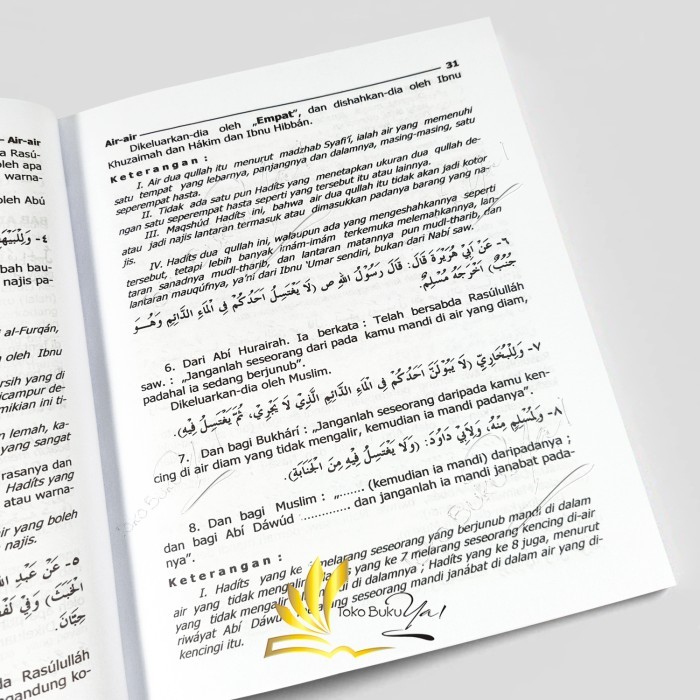 – Air-air
a Rasú-
oleh apa
warna-
oleh Abú
٤- وَلِلْبَيْهَ
bah bau-
najis pa-
al-Furqán,
oleh Ibnu
rsih yang di
icampur de-
mikian ini ti-
n lemah, ka-
yang sangat
rasanya dan
Hadíts yang
atau warna-
ir yang boleh
najis.
٥- عَنْ عَبْدِ اللّٰ
الْخَبَثَ) وَفِي لَفْ
حِبَّانَ.
la Rasúlulláh
ngandung ko-
Air-air 31
Dikeluarkan-dia oleh „Empat", dan dishahkan-dia oleh Ibnu
Khuzaimah dan Hákim dan Ibnu Hibbán.
Keterangan :
I. Air dua qullah itu menurut madzhab Syafi'í, ialah air yang memenuhi
satu tempat yang lebarnya, panjangnya dan dalamnya, masing-masing, satu
seperempat hasta.
II. Tidak ada satu pun Hadíts yang menetapkan ukuran dua qullah de-
ngan satu seperempat hasta seperti yang tersebut itu atau lainnya.
III. Maqshúd Hadíts ini, bahwa air dua qullah itu tidak akan jadi kotor
atau jadi najis lantaran termasuk atau dimasukkan padanya barang yang na-
jis.
IV. Hadíts dua qullah ini, walaupun ada yang mengeshahkannya seperti
tersebut, tetapi lebih banyak imám-imám terkemuka melemahkannya, lan-
taran sanadnya mudl-tharib, dan lantaran matannya pun mudl-tharib, dan
lantaran mauqúfnya, ya'ni dari Ibnu 'Umar sendiri, bukan dari Nabí saw.
٦- عَنْ أَبِي هُرَيْرَةَ قَالَ: قَالَ رَسُوْلُ اللهِ ص (لَا يَغْتَسِلْ أَحَدُكُمْ فِي الْمَاءِ الدَّائِمِ وَهُوَ
جُنُبٌ) أَخْرَجَهُ مُسْلِمٌ.
6. Dari Abí Hurairah. Ia berkata : Telah bersabda Rasúlulláh
saw. : „Janganlah seseorang dari pada kamu mandi di air yang diam,
padahal ia sedang berjunub".
Dikeluarkan-dia oleh Muslim.
٧- وَلِلْبُخَارِيِّ (لَا يَبُوْلَنَّ أَحَدُكُمْ فِي الْمَاءِ الدَّائِمِ الَّذِيْ لَا يَجْرِيْ، ثُمَّ يَغْتَسِلُ فِيْهِ).
7. Dan bagi Bukhárí : „Janganlah seseorang daripada kamu ken-
cing di air diam yang tidak mengalir, kemudian ia mandi padanya".
٨- وَلِمُسْلِمٍ مِنْهُ، وَلِأَبِيْ دَاوُدَ: (وَلَا يَغْتَسِلْ فِيْهِ مِنَ الْجَنَابَةِ).
8. Dan bagi Muslim : „....... (kemudian ia mandi) daripadanya ;
dan bagi Abí Dáwúd ............. dan janganlah ia mandi janabat pada-
nya".
Keterangan :
I. Hadíts yang ke melarang seseorang yang berjunub mandi di dalam
air yang tidak mengalir yang ke 7 melarang seseorang kencing di-air
yang tidak mengalir di di dalamnya ; Hadíts yang ke 8 juga, menurut
riwáyat Abí Dáwú seseorang mandi janábat di dalam air yang di-
kencingi itu.
Toko Buku Yal